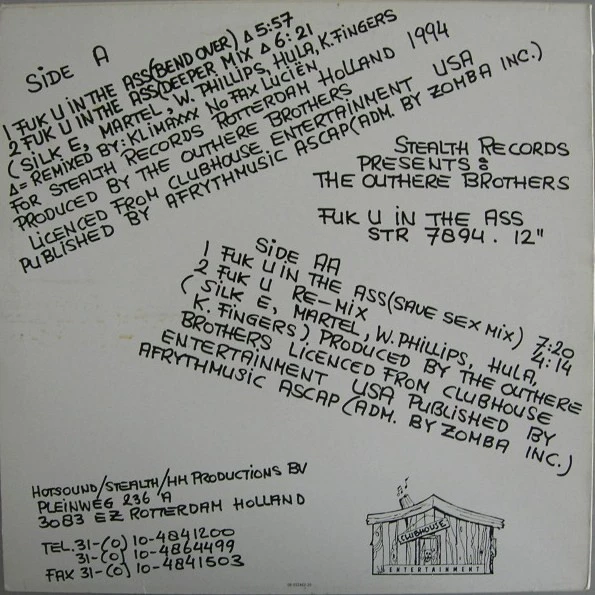 SIDE A
1 FUK U IN THE ASS(BEND OVER) Δ 5:57
2 FUK U IN THE ASS(DEEPER MIX Δ 6:21
(SILK E, MARTEL, W. PHILLIPS, HULA, K. FINGERS
Δ= REMIXED BY: KLIMAXXX NO FAX LUCIËN
FOR STEALTH RECORDS ROTTERDAM HOLLAND 1994
PRODUCED BY THE OUTHERE BROTHERS
LICENCED FROM CLUBHOUSE ENTERTAINMENT USA
PUBLISHED BY AFRYTHMUSIC ASCAP(ADM. BY ZOMBA INC.)
STEALTH RECORDS
PRESENTS :
THE OUTHERE BROTHERS
FUK U IN THE ASS
STR 7894. 12"
SIDE AA
1 FUK U IN THE ASS(SAVE SEX MIX) 7:20
2 FUK U RE-MIX 4:14
(SILK E, MARTEL, W. PHILLIPS, HULA,
K. FINGERS) PRODUCED BY THE OUTHERE
BROTHERS LICENCED FROM CLUBHOUSE
ENTERTAINMENT USA PUBLISHED BY
AFRYTHMUSIC ASCAP (ADM. BY ZOMBA INC.)
HOTSOUND/STEALTH/HH PRODUCTIONS BV
PLEINWEG 236 A
3083 EZ ROTTERDAM HOLLAND
TEL. 31-(0) 10-4841200
31-(0) 10-4864499
FAX 31-(0) 10-4841503
CLUBHOUSE
ENTERTAINMENT